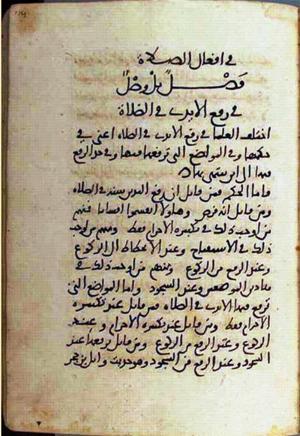 في افعال الصلاة
فصل
في رفع الايدي في الصلاة
اختلف العلما في رفع الايدي في الصلاة اعني في
حكمها وفي المواضع التي ترفع فيها وفي حد الرفع
فيها الى اين ينتهي بها
فاما الحكم فمن قايل ان رفع اليدين سنة في الصلاة
ومن قايل انه فرض وهاولا انقسموا اقساما فمنهم
من اوجب ذلك في تكبيرة الاحرام فقط ومنهم من اوجب
ذلك في الاستفتاح وعند الانحطاط الى الركوع
وعند الرفع من الركوع ومنهم من اوجب ذلك في
هاذين الموضعين وعند السجود واما المواضع التي
ترفع فيها الايدي في الصلاة فمن قايل عند تكبيرة
الاحرام فقط ومن قايل عند تكبيرة الاحرام وعند
الركوع وعند الرفع من الركوع ومن قايل يرفعها عند
السجود وعند الرفع من السجود وهو حديث وايل بن حجر